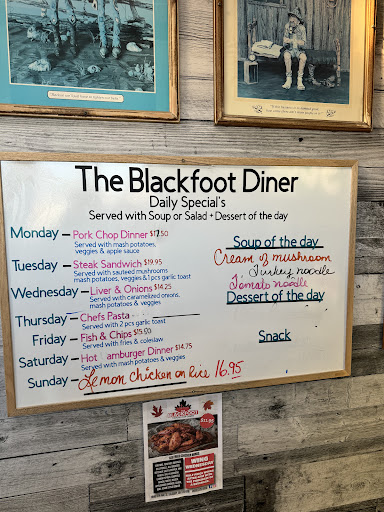 The Blackfoot Diner
Daily Special's
Served with Soup or Salad + Dessert of the day
Monday – Pork Chop Dinner $17.50
Served with mash potatoes,
veggies & apple sauce
Tuesday – Steak Sandwich $19.95
Served with sauteed mushrooms
mash potatoes, veggies & 1 pcs garlic toast
Wednesday – Liver & Onions $14.25
Served with caramelized onions,
mash potatoes & veggies
Thursday – Chefs Pasta
Served with 2 pcs garlic toast
Friday – Fish & Chips $15.00
Served with fries & coleslaw
Saturday – Hot amburger Dinner $14.75
Served with mash potatoes & veggies
Sunday – Lemon chicken on rice 16.95
Soup of the day
Cream of mushroom
Turkey noodle
Tomato noodle
Dessert of the day
Snack
BLACKFOOT
WING
WEDNESDAY